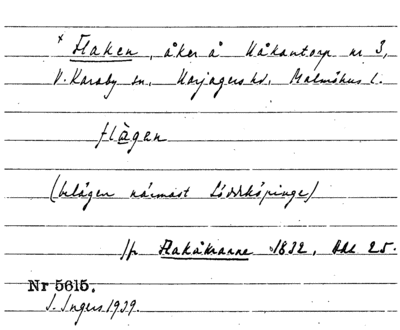 x Flaken, åker å Håkantorp nr 3,
V. Karaby sn, Harjagers hd, Malmöhus l.
flàgen
(belägen närmast Löddeköpinge)
Jfr Flakåkrarne 1832, Akt 25.
Nr 5615.
I. Ingers 1939.